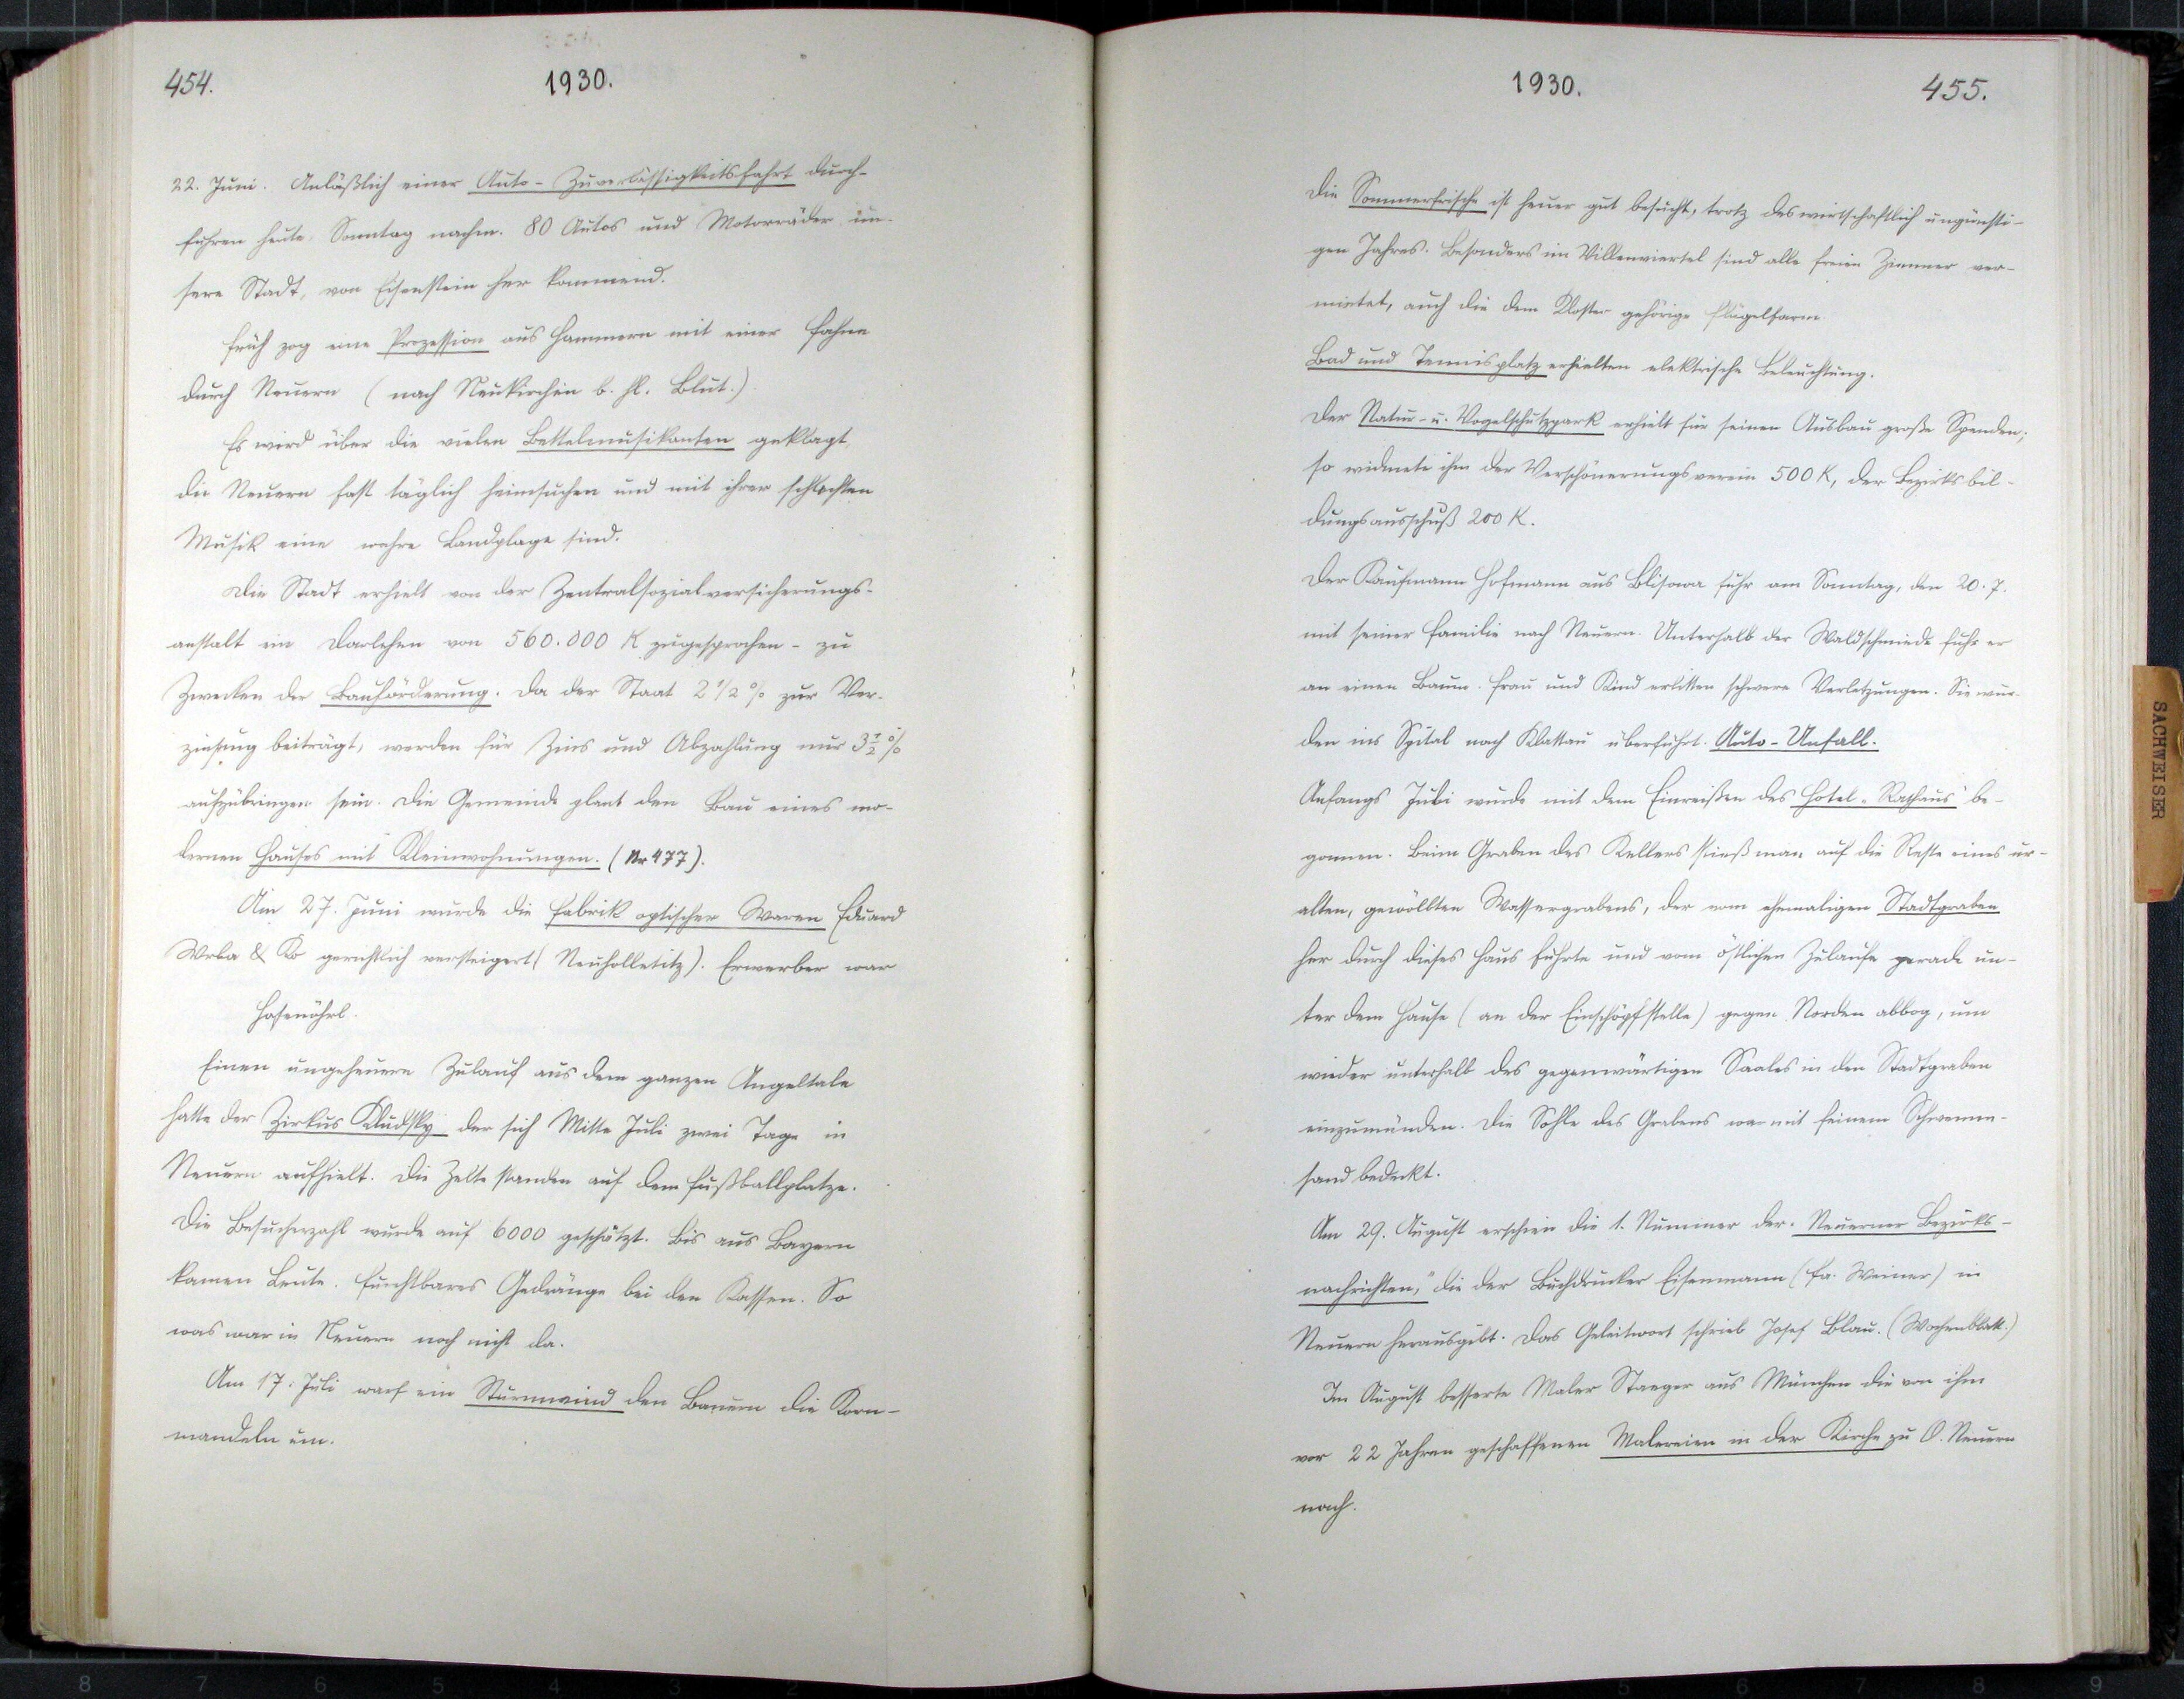 454.
1930.
22. Juni. Anläßlich einer Auto-Zuverlässigkeitsfahrt durch-
fuhren heute Sonntag nachm. 80 Autos und Motorräder un-
sere Stadt, von Eisenstein her kommend.
Früh zog eine Prozession aus Hammern mit einer Fahne
durch Neuern (nach Neukirchen b. hl. Blut.)
Es wird über die vielen Bettelmusikanten geklagt,
die Neuern fast täglich heimsuchen und mit ihrer schlechten
Musik eine wahre Landplage sind.
Die Stadt erhielt von der Zentralsozialversicherungs-
anstalt ein Darlehen von 560.000 K zugesprochen - zu
Zwecken der Bauförderung. Da der Staat 2 1/2 % zur Ver-
zinsung beiträgt, werden für Zins und Abzahlung nur 3 1/2 %
aufzubringen sein. Die Gemeinde plant den Bau eines mo-
dernen Hauses mit Kleinwohnungen. (Nr 477).
Am 27. Juni wurde die Fabrik optischer Waren Eduard
Wrba & Ko gerichtlich versteigert (Neuholletitz). Erwerber war
Hasenöhrl.
Einen ungeheuren Zulauf aus dem ganzen Angeltale
hatte der Zirkus Kludsky der sich Mitte Juli zwei Tage in
Neuern aufhielt. Die Zelte standen auf dem Fußballplatze.
Die Besucherzahl wurde auf 6000 geschätzt. Bis aus Bayern
kamen Leute. Furchtbares Gedränge bei den Kassen. So
was war in Neuern noch nicht da.
Am 17. Juli warf ein Sturmwind den Bauern die Korn-
mandeln um.
1930.
455.
Die Sommerfrische ist heuer gut besucht, trotz des wirtschaftlich ungünsti-
gen Jahres. Besonders im Villenviertel sind alle freien Zimmer ver-
mietet, auch die dem Kloster gehörige Flügelfarm.
Bad und Tennisplatz erhielten elektrische Beleuchtung.
Der Natur- u. Vogelschutzpark erhielt für seinen Ausbau große Spenden;
so widmete ihm der Verschönerungsverein 500 K, der Bezirksbil-
dungsausschuß 200 K.
Der Kaufmann Hofmann aus Blisowa fuhr am Sonntag, den 20. 7.
mit seiner Familie nach Neuern. Unterhalb der Waldschmiede fuhr er
an einen Baum. Frau und Kind erlitten schwere Verletzungen. Sie wur-
den ins Spital nach Klattau überführt. Auto-Unfall.
Anfangs Juli wurde mit dem Einreißen des Hotel „Rathaus" be-
gonnen. Beim Graben des Kellers stieß man auf die Reste eines ur-
alten, gewölbten Wassergrabens, der vom ehemaligen Stadtgraben
her durch dieses Haus führte und vom östlichen Zulaufe gerade un-
ter dem Hause (an der Einschöpfstelle) gegen Norden abbog, um
wieder unterhalb des gegenwärtigen Saales in den Stadtgraben
einzumünden. Die Sohle des Grabens war mit feinem Schwemm-
sand bedeckt.
Am 29. August erschien die 1. Nummer der „Neuerner Bezirks-
nachrichten," die der Buchdrucker Eisenmann (Fa. Weiner) in
Neuern herausgibt. Das Geleitwort schrieb Josef Blau. (Wochenblatt.)
Im August besserte Maler Staeger aus München die von ihm
vor 22 Jahren geschaffenen Malereien in der Kirche zu O. Neuern
nach.
SACHWEISER
8 7 6 5 4 3 2 4 5 6 7 8 9